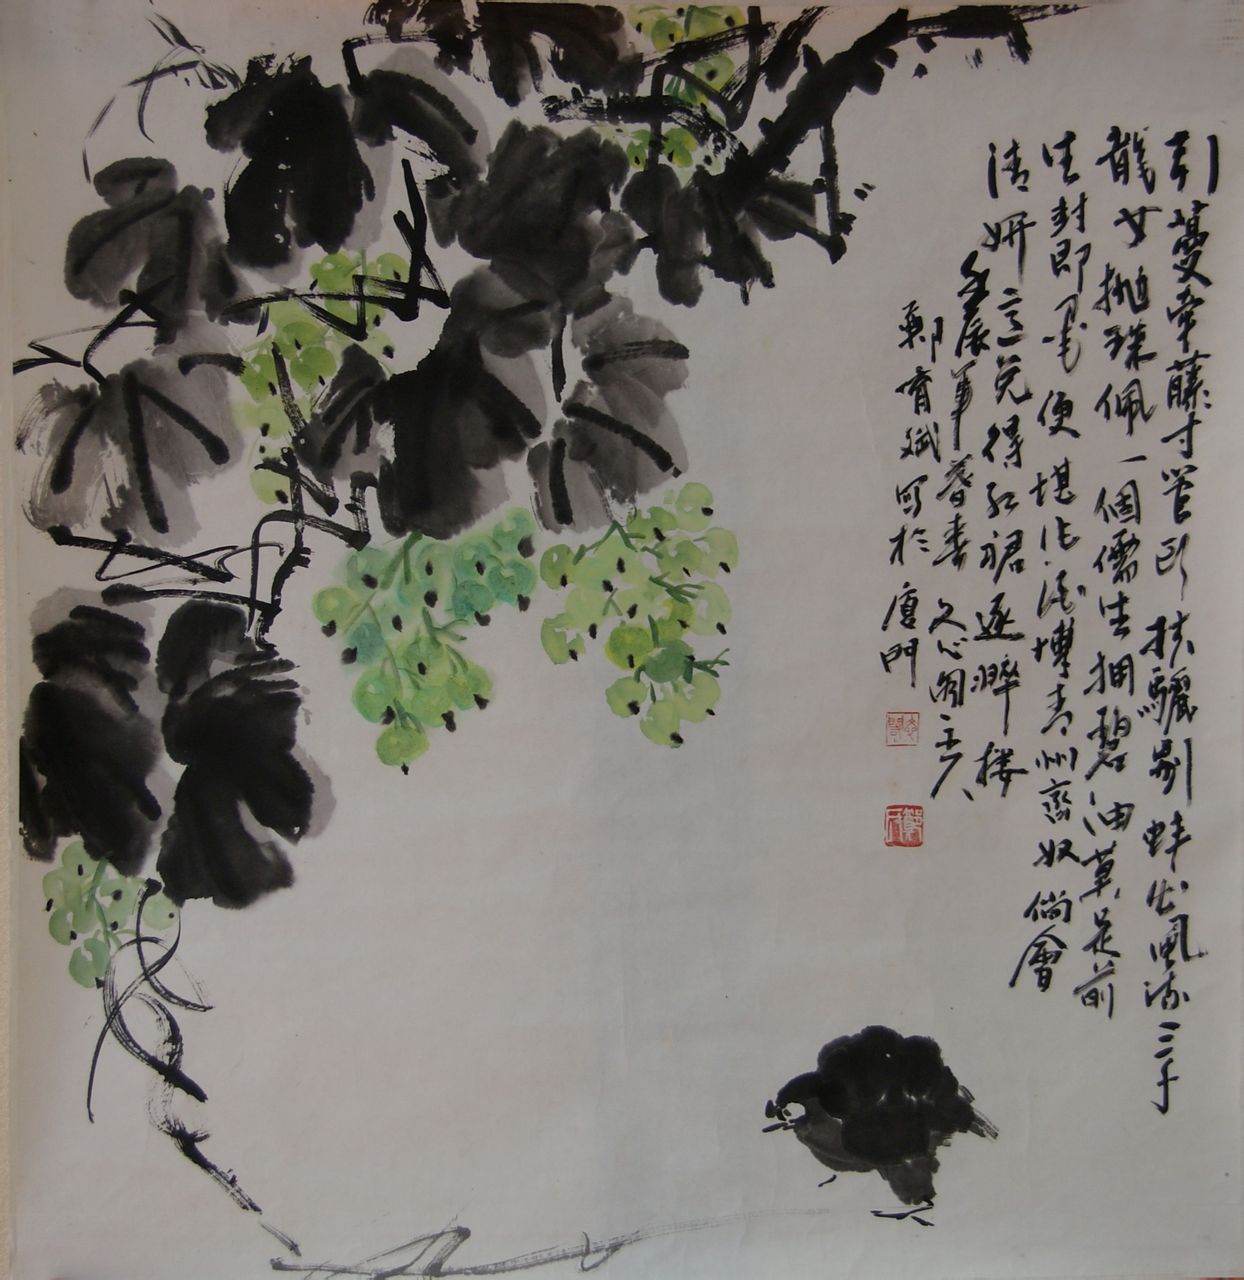 引蔓牽藤寸管頭扶驪剔蚌出風流三千
龍女拋珠佩一個儒生捆碧油莫是前
生封即墨便堪作酒博青州奚奴倘會
清妍意免得紅裙逐醉樓
壬辰年暮春文心閣主人
鄭育斌寫於廈門